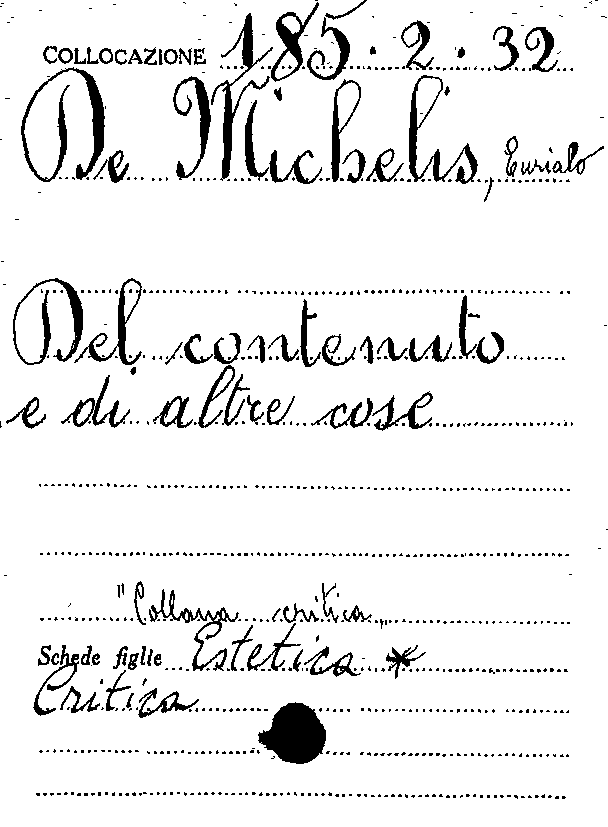 COLLOCAZIONE 185.2.32
De Michelis, Eurialo
Del contenuto
e di altre cose
"Collana critica„
Schede figlie Estetica *
Critica